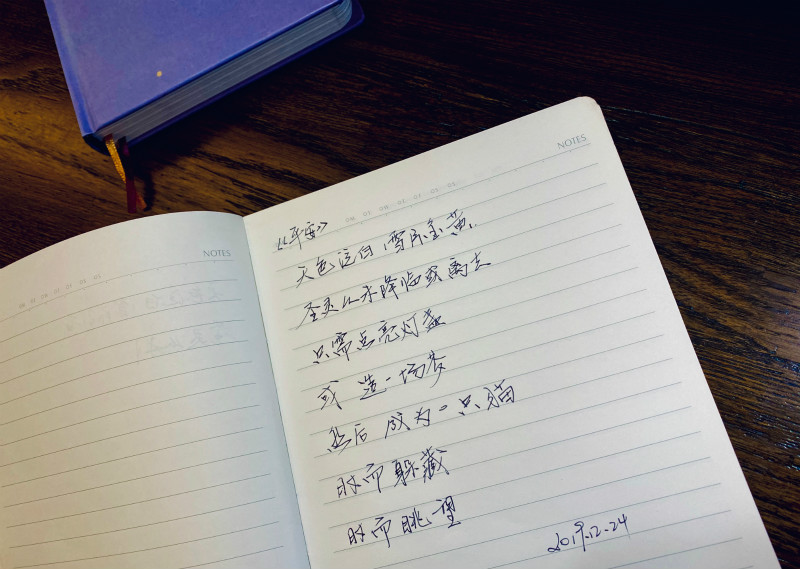 NOTES
《平安》
天色泛白，雪月金黄，
圣灵从未降临或离去
只需点亮灯盏
或 造一场梦
然后 成为一只猫
时而躲藏
时而眺望
2019.12.24
NOTES